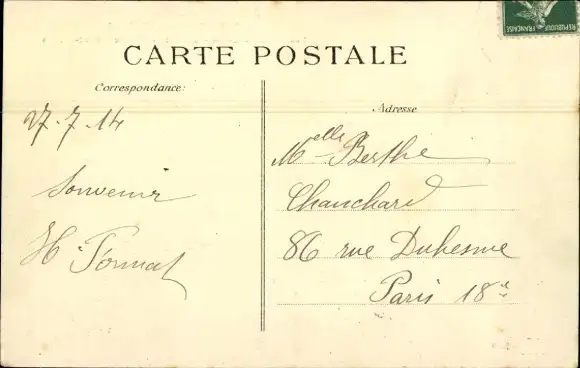 CARTE POSTALE
Correspondance:
Adresse
27-7-14
Souvenir
H. Formal
Melle Berthe
Chanchard
86 rue Duhesme
Paris 18e
REPUBLIQUE FRANÇAISE